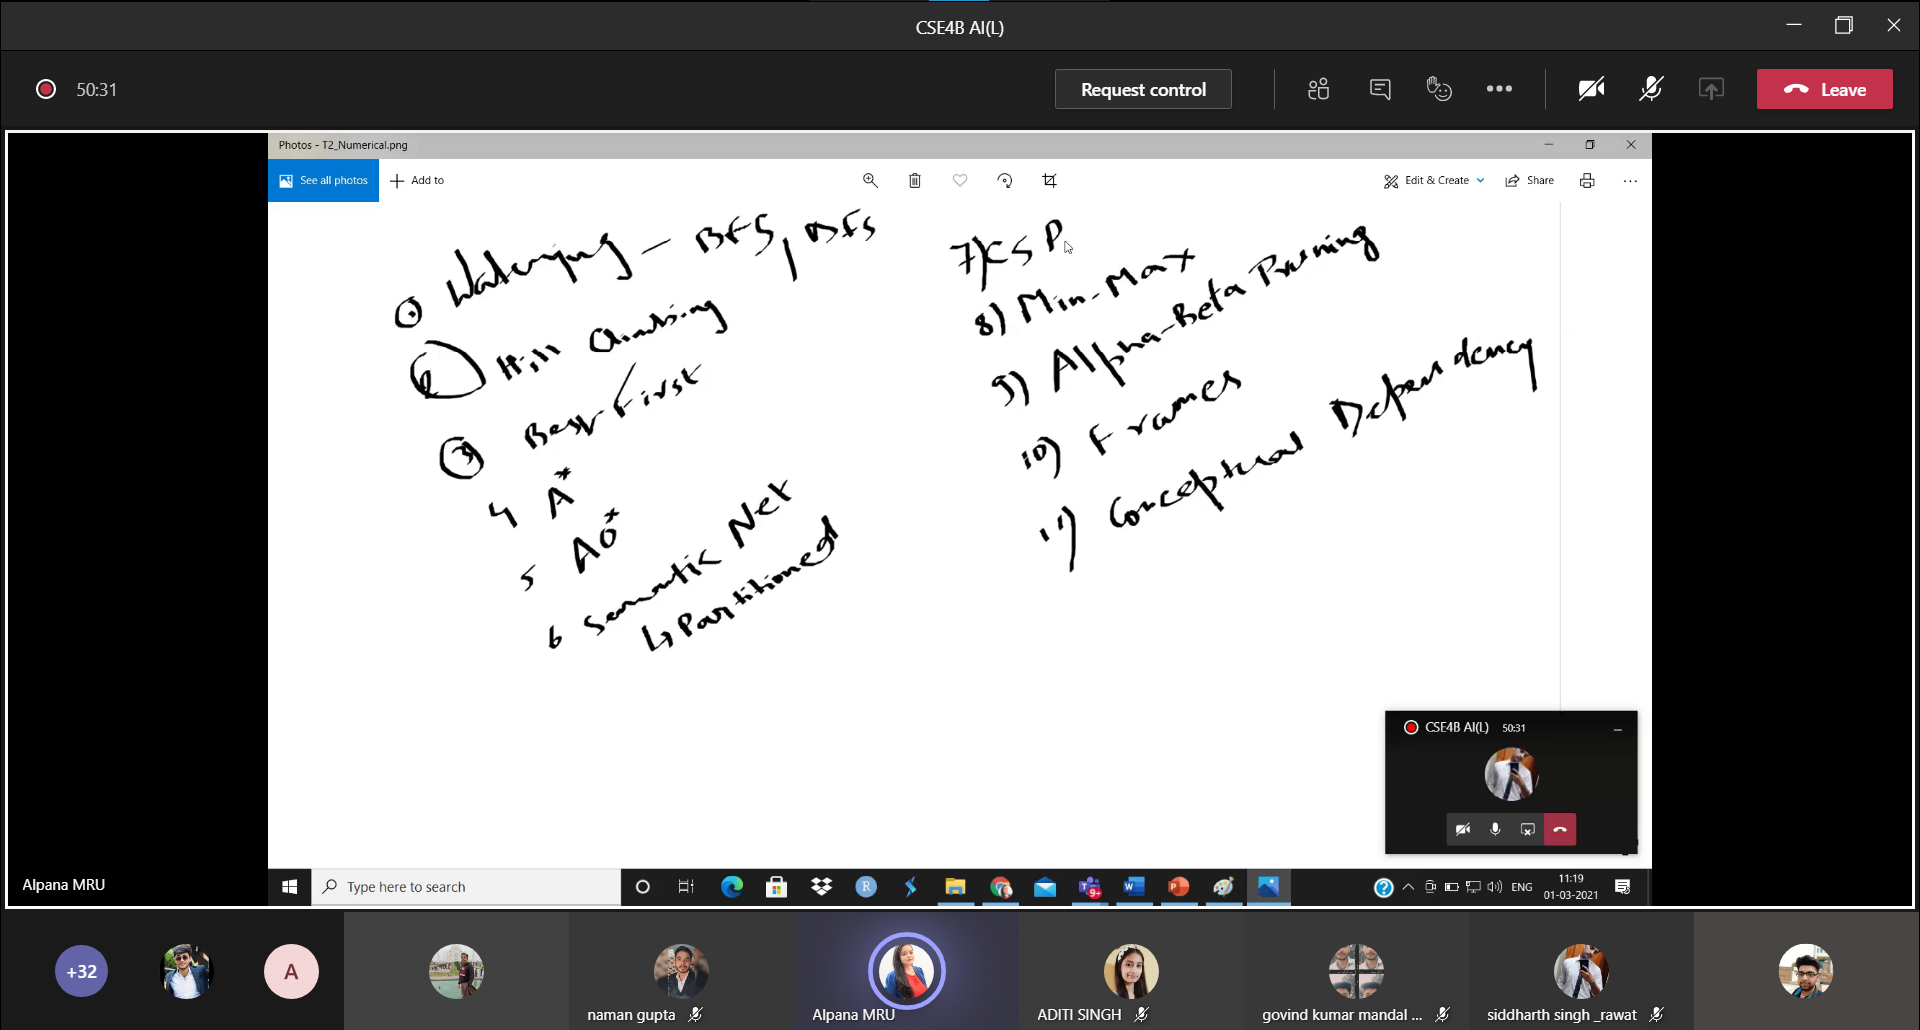 CSE4B AI(L)
50:31
Request control
Leave
Photos - T2_Numerical.png
See all photos
Add to
Edit & Create
Share
① Waterjug - BFS, DFS
② Hill Climbing
③ Best First
4 A*
5 AO*
6 Semantic Net
↳ Partitioned
7) CSP
8) Min-Max
9) Alpha-Beta Pruning
10) Frames
11) Conceptual Dependency
CSE4B AI(L) 50:31
Alpana MRU
Type here to search
9+
ENG
11:19
01-03-2021
+32
A
naman gupta
Alpana MRU
ADITI SINGH
govind kumar mandal ...
siddharth singh _rawat